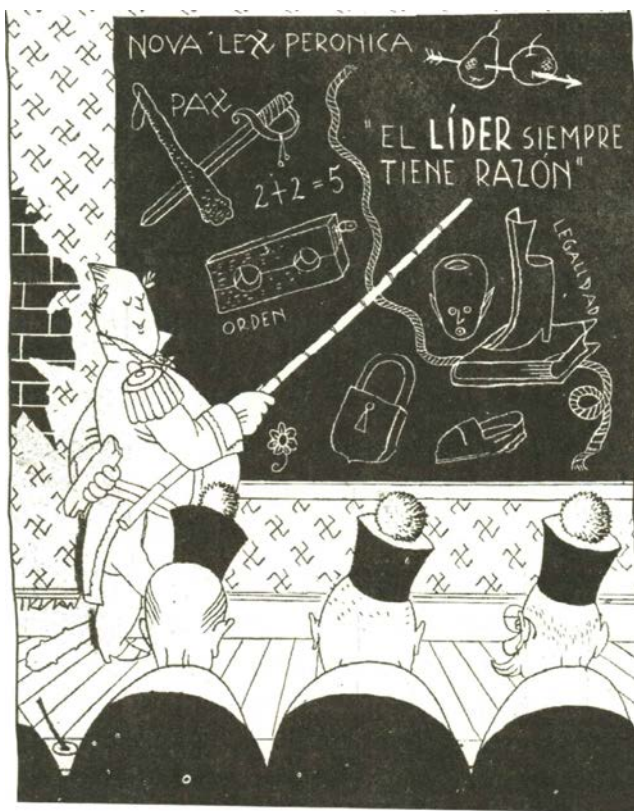 NOVA LEX PERONICA
PAX
"EL LÍDER SIEMPRE
TIENE RAZÓN"
2+2=5
LEGALIDAD
ORDEN
TRISTAN